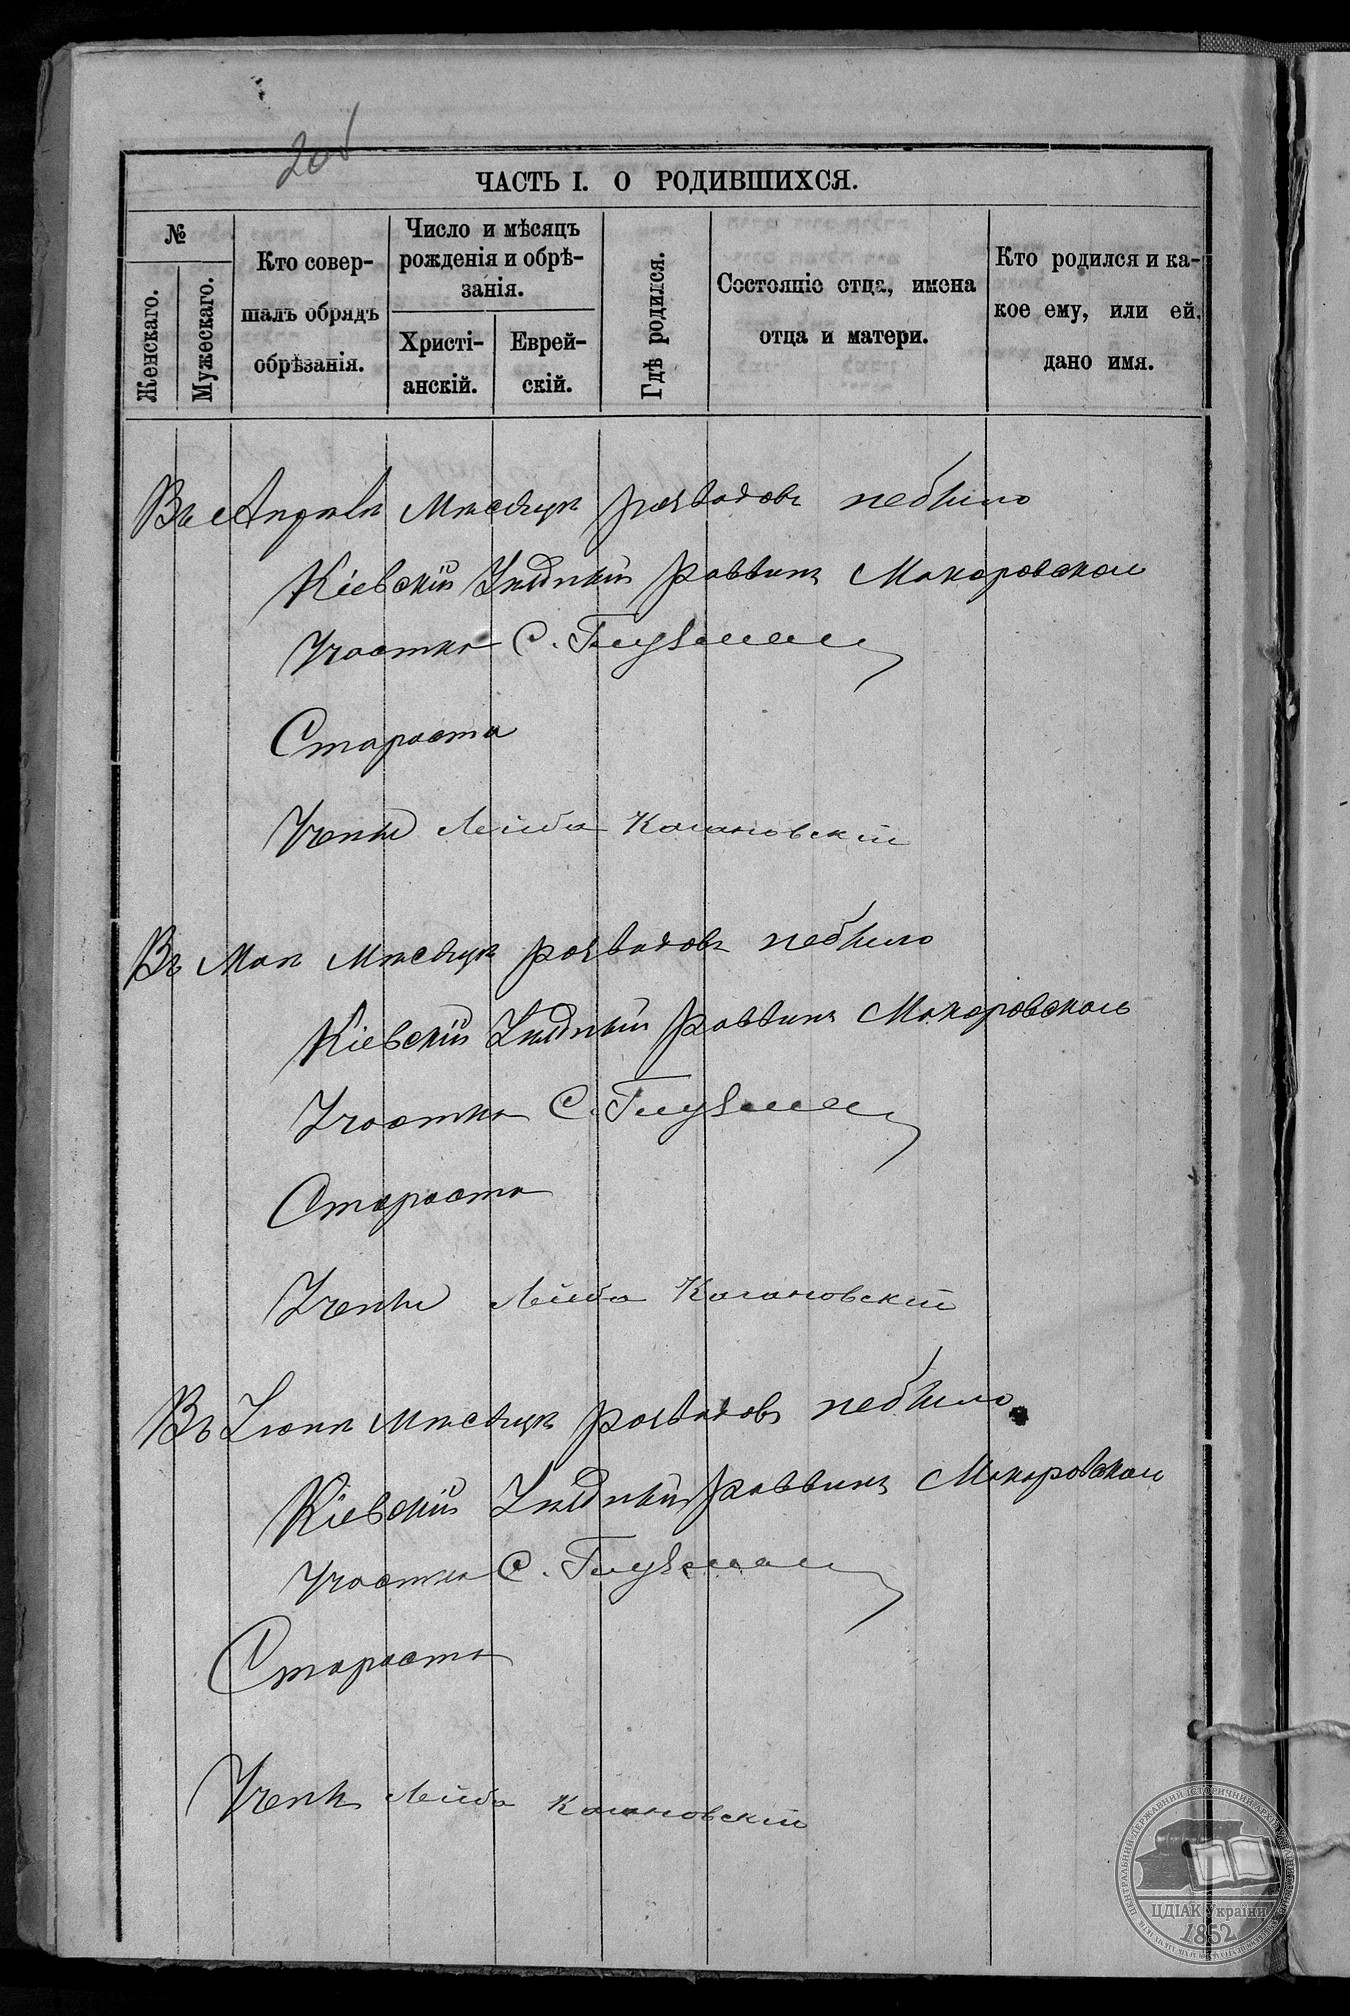 208
ЧАСТЬ I. О РОДИВШИХСЯ.
№
Женскаго.
Мужескаго.
Кто совер-
шалъ обрядъ
обрѣзанія.
Число и мѣсяцъ
рожденія и обрѣ-
занія.
Христі-
анскій.
Еврей-
скій.
Гдѣ родился.
Состояніе отца, имена
отца и матери.
Кто родился и ка-
кое ему, или ей,
дано имя.
Въ Апрелѣ Мѣсяцѣ разводовъ небыло
Кіевскій Уѣздный раввинъ Макаровскаго
Участка С. Глузман
Староста
Ученый Лейба Кагановскій
Въ Маѣ Мѣсяцѣ разводовъ небыло
Кіевскій Уѣздный раввинъ Макаровскаго
Участка С. Глузман
Староста
Ученый Лейба Кагановскій
Въ Іюнѣ Мѣсяцѣ разводовъ небыло
Кіевскій Уѣздный раввинъ Макаровскаго
Участка С. Глузман
Староста
Ученый Лейба Кагановскій
ЦЕНТРАЛЬНИЙ ДЕРЖАВНИЙ ІСТОРИЧНИЙ АРХІВ УКРАЇНИ
ЦДІАК України
1852